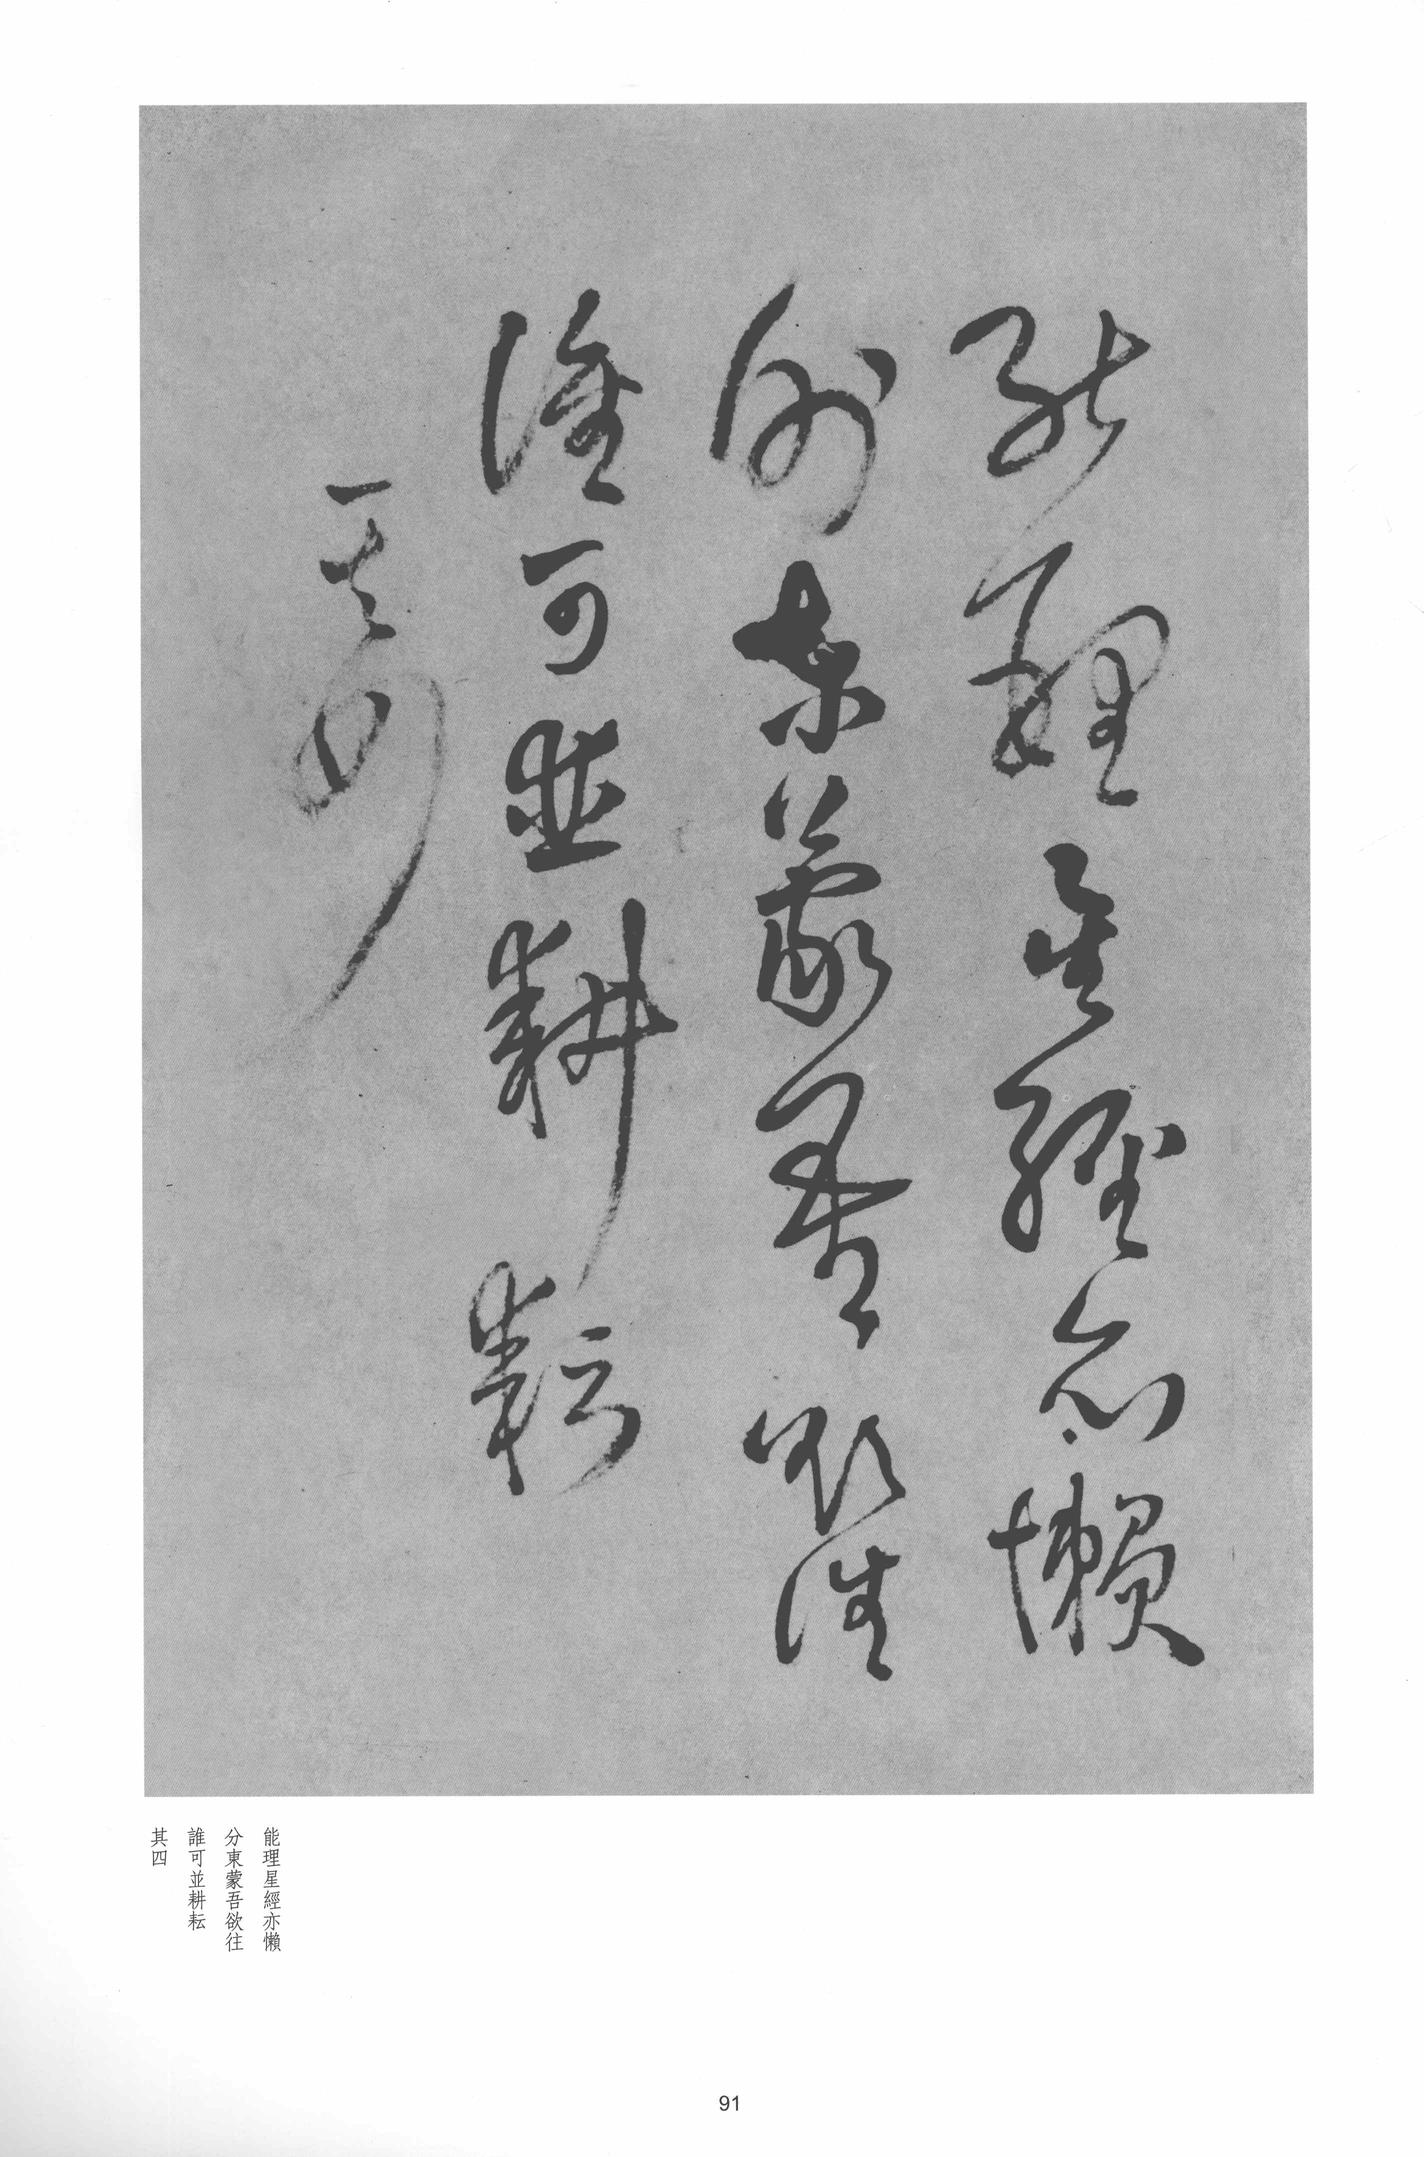 能理星經亦懶
分東蒙吾欲往
誰可並耕耘
其四
能理星經亦懶
分東蒙吾欲往
誰可並耕耘
其四
91